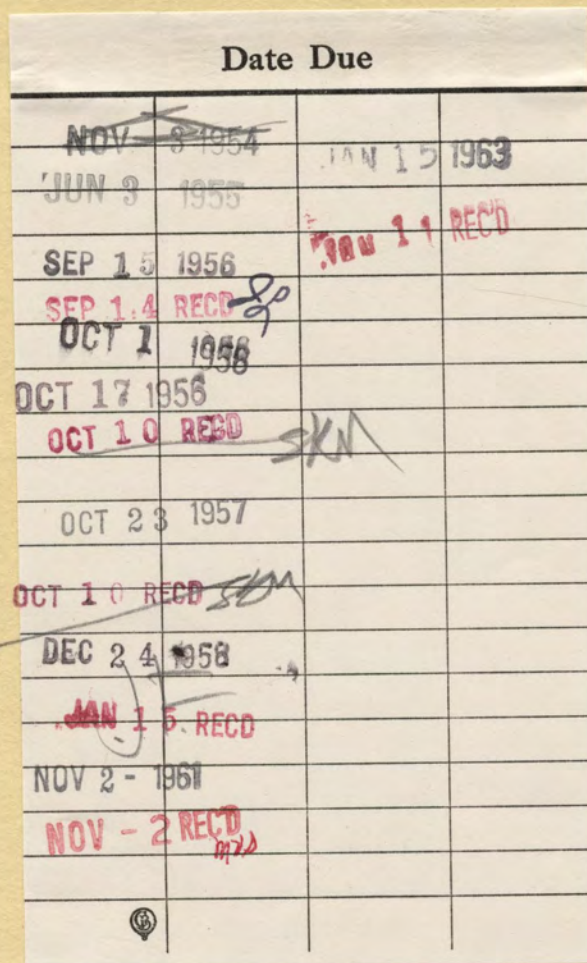 Date Due
NOV - 3 1954
JUN 3 1955
SEP 15 1956
SEP 14 RECD
OCT 1 1956
OCT 17 1956
OCT 10 RECD SKM
OCT 23 1957
OCT 10 RECD SKM
DEC 24 1958
JAN 15 RECD
NOV 2 - 1961
NOV - 2 REC'D
JAN 15 1963
JAN 11 REC'D